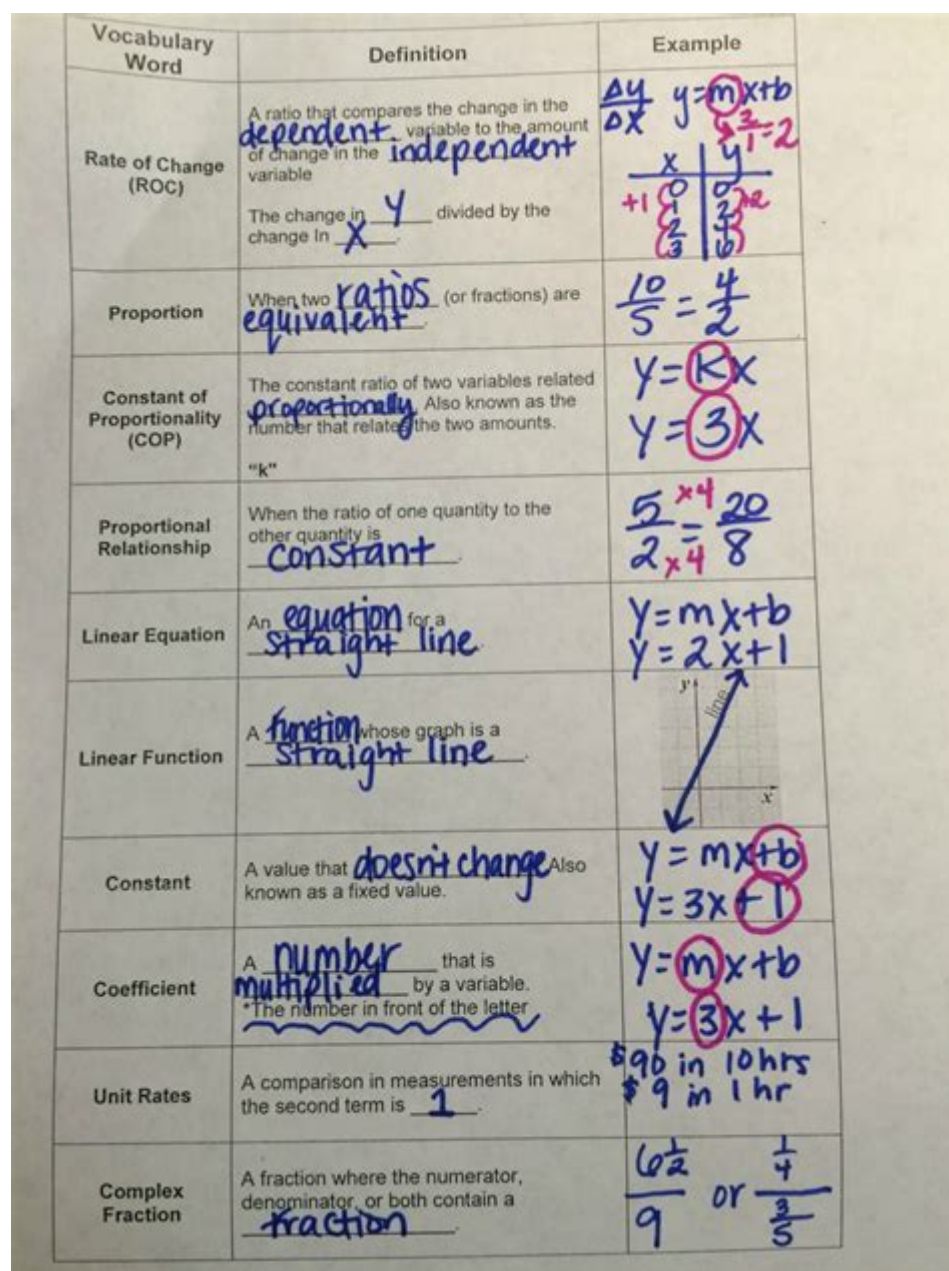 Vocabulary Word
Definition
Example
Rate of Change
(ROC)
A ratio that compares the change in the
dependent variable to the amount
of change in the independent
variable
The change in y divided by the
change In x.
Δy/Δx y=mx+b
2/1=2
x | y
0 | 0
1 | 2
2 | 4
3 | 6
+1 +2
Proportion
When two ratios (or fractions) are
equivalent.
10/5 = 4/2
Constant of
Proportionality
(COP)
The constant ratio of two variables related
proportionally. Also known as the
number that relates the two amounts.
"k"
y=kx
y=3x
Proportional
Relationship
When the ratio of one quantity to the
other quantity is
constant.
5/2 = 20/8
x4
x4
Linear Equation
An equation for a
straight line.
y=mx+b
y=2x+1
Linear Function
A function whose graph is a
straight line.
y
line
x
Constant
A value that doesn't change Also
known as a fixed value.
y=mx+b
y=3x+1
Coefficient
A number that is
multiplied by a variable.
*The number in front of the letter
y=mx+b
y=3x+1
Unit Rates
A comparison in measurements in which
the second term is 1.
$90 in 10hrs
$9 in 1hr
Complex
Fraction
A fraction where the numerator,
denominator, or both contain a
fraction.
6 1/2 / 9 or 1/4 / 3/5